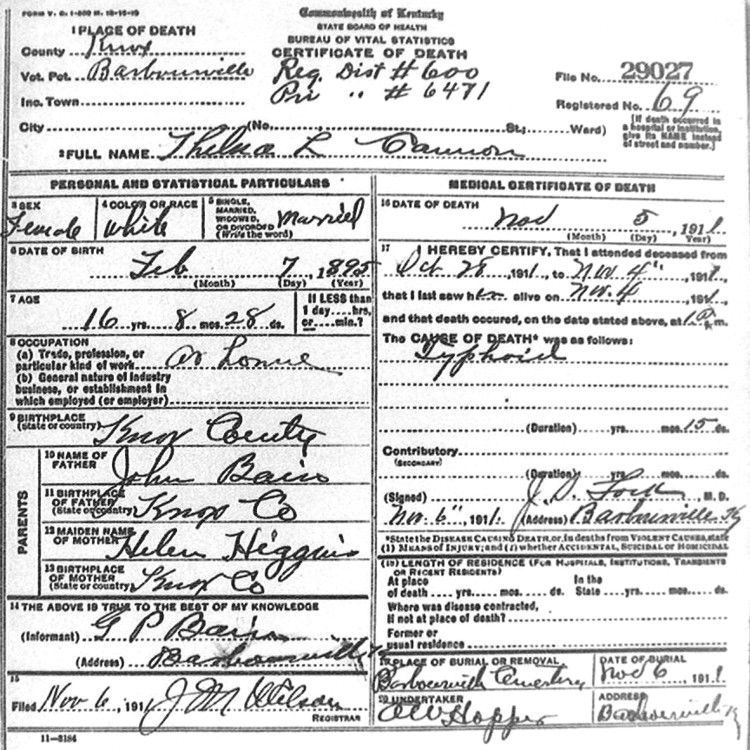 FORM V. S. 1-500 M. 12-15-10
Commonwealth of Kentucky
STATE BOARD OF HEALTH
BUREAU OF VITAL STATISTICS
CERTIFICATE OF DEATH
1 PLACE OF DEATH
County Knox
Vot. Pct. Barbourville
Inc. Town
Reg Dist # 600
Pri " # 6471
File No. 29027
Registered No. 69
City (No. St.; Ward)
[If death occurred in a hospital or institution, give its NAME instead of street and number.]
2 FULL NAME Thelsa L Cannon
PERSONAL AND STATISTICAL PARTICULARS
3 SEX Female
4 COLOR OR RACE White
5 SINGLE, MARRIED, WIDOWED, OR DIVORCED (Write the word) Married
6 DATE OF BIRTH
Feb 7, 1895
(Month) (Day) (Year)
7 AGE
16 yrs. 8 mos. 28 ds.
If LESS than 1 day hrs. or min.?
8 OCCUPATION
(a) Trade, profession, or particular kind of work
(b) General nature of industry business, or establishment in which employed (or employer)
9 BIRTHPLACE (State or country) Knox County
PARENTS
10 NAME OF FATHER John Bain
11 BIRTHPLACE OF FATHER (State or country) Knox Co
12 MAIDEN NAME OF MOTHER Helen Higgins
13 BIRTHPLACE OF MOTHER (State or country) Knox Co
14 THE ABOVE IS TRUE TO THE BEST OF MY KNOWLEDGE
(Informant) G P Bain
(Address) Barbourville
15
Filed Nov 6, 1911 J M Wilson
REGISTRAR
11-3184
MEDICAL CERTIFICATE OF DEATH
16 DATE OF DEATH
Nov 5, 1911
(Month) (Day) (Year)
17 I HEREBY CERTIFY, That I attended deceased from
Oct 28, 1911, to Nov. 4", 1911,
that I last saw her alive on Nov. 4, 1911,
and that death occured, on the date stated above, at 1 a m.
The CAUSE OF DEATH* was as follows:
Typhoid
(Duration) yrs. mos. 15 ds.
Contributory
(SECONDARY)
(Duration) yrs. mos. ds.
(Signed) J. D. M. D.
Nov. 6", 1911. (Address) Barbourville Ky
*State the DISEASE CAUSING DEATH, or, in deaths from VIOLENT CAUSES, state
(1) MEANS OF INJURY; and (2) whether ACCIDENTAL, SUICIDAL or HOMICIDAL
(18) LENGTH OF RESIDENCE (FOR HOSPITALS, INSTITUTIONS, TRANSIENTS OR RECENT RESIDENTS)
At place of death yrs. mos. ds. In the State yrs. mos. ds.
Where was disease contracted,
If not at place of death?
Former or usual residence
19 PLACE OF BURIAL OR REMOVAL Barbourville Cemetery
DATE OF BURIAL Nov 6, 1911
20 UNDERTAKER Hopper
ADDRESS Barbourville Ky